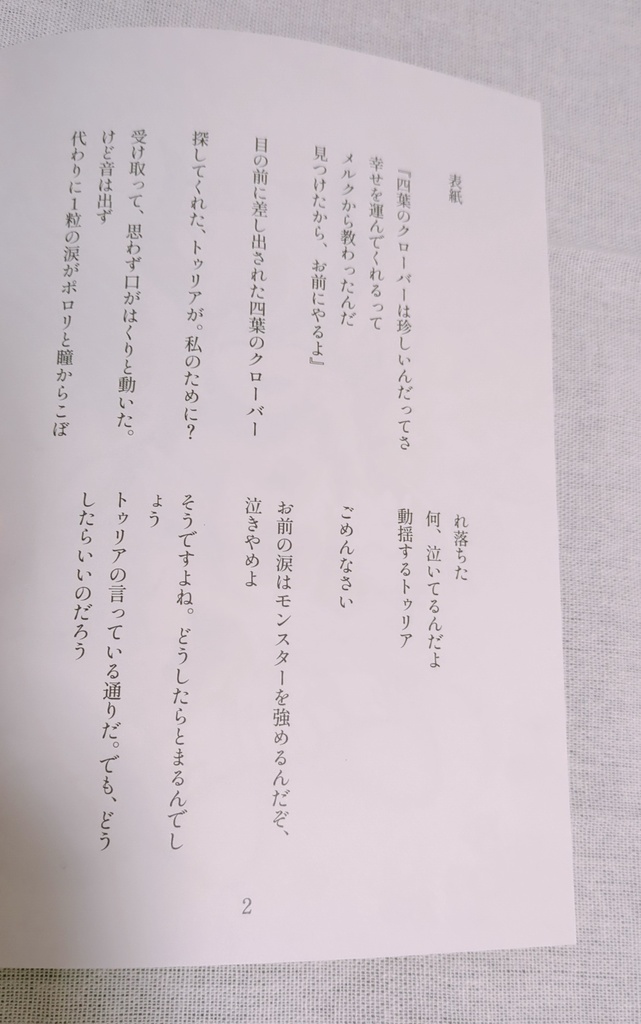 表紙
『四葉のクローバーは珍しいんだってさ
幸せを運んでくれるって
メルクから教わったんだ
見つけたから、お前にやるよ』
目の前に差し出された四葉のクローバー
探してくれた、トゥリアが。私のために?
受け取って、思わず口がはくりと動いた。
けど音は出ず
代わりに1粒の涙がポロリと瞳からこぼ
れ落ちた
何、泣いてるんだよ
動揺するトゥリア
ごめんなさい
お前の涙はモンスターを強めるんだぞ、
泣きやめよ
そうですよね。どうしたらとまるんでし
ょう
トゥリアの言っている通りだ。でも、どう
したらいいのだろう
2